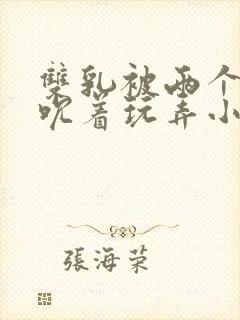 雙乳被兩个
吮着玩弄小
張海荣